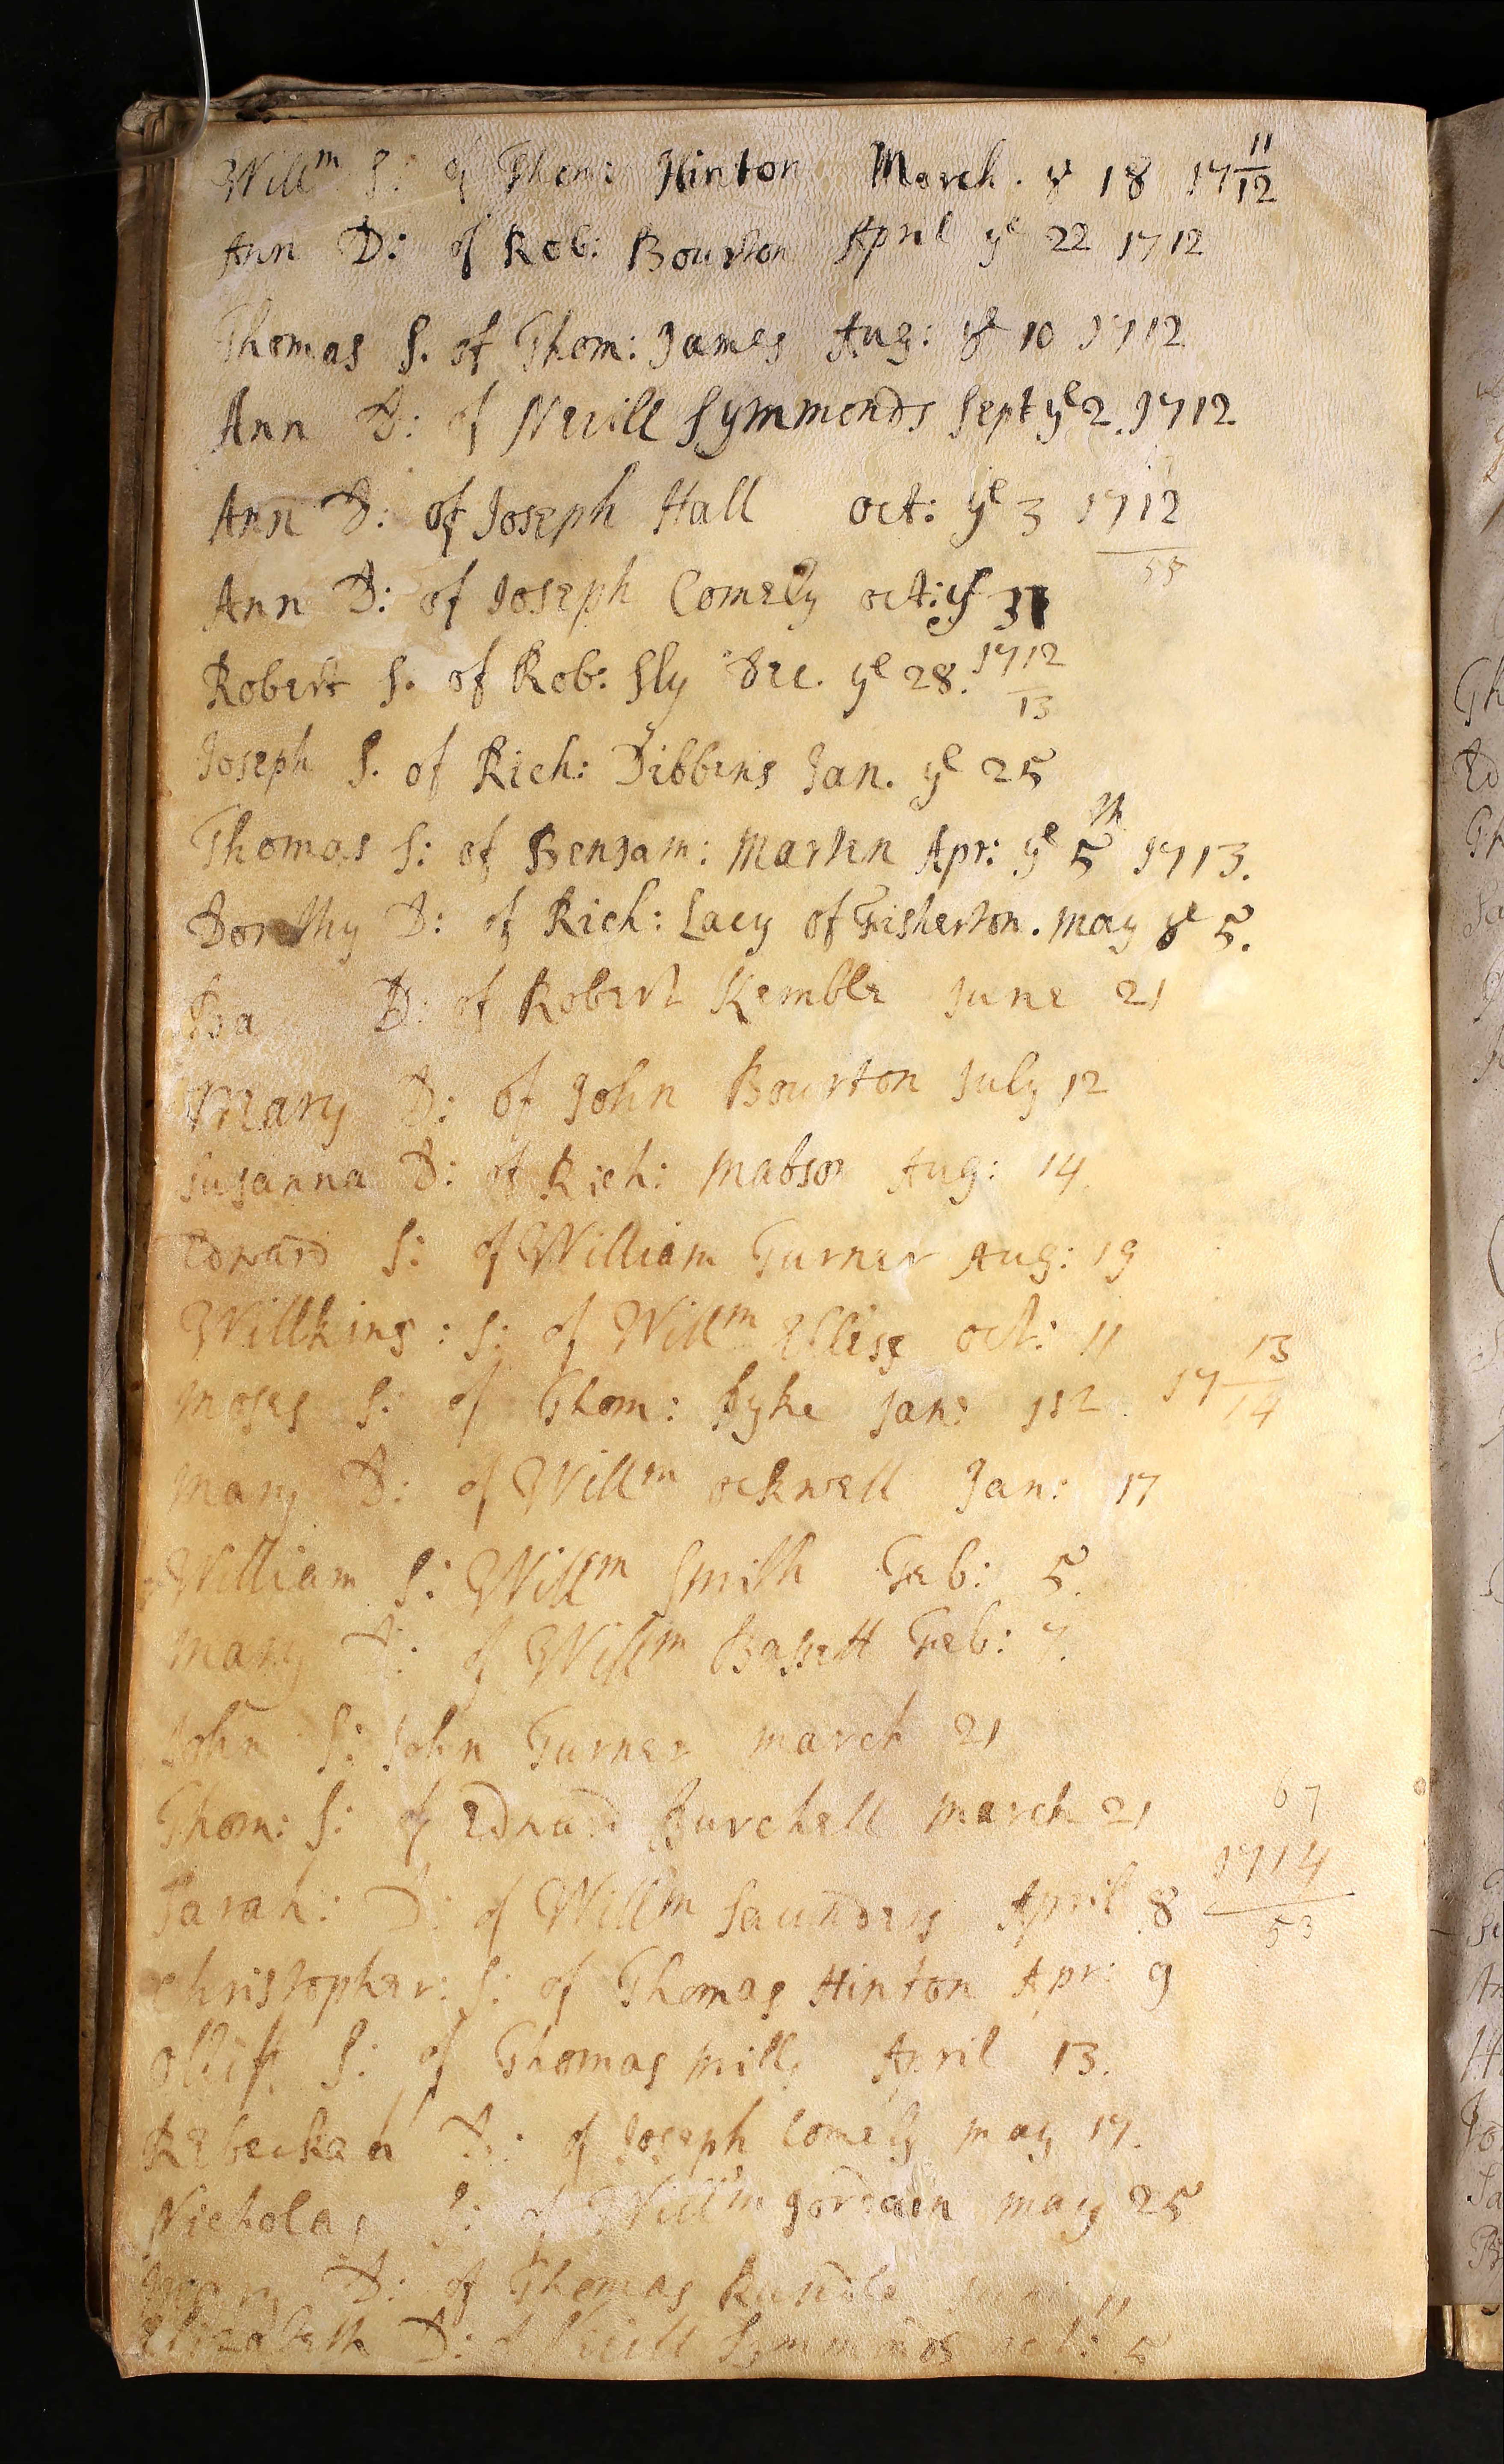 Willm S: of Thom: Hinton March. ye 18 17 11/12
Ann D: of Rob: Bourton April ye 22 1712
Thomas S. of Thom: James Aug: ye 10 1712
Ann D: of Nevill Symmonds Sept ye 2. 1712.
Ann D: of Joseph Hall oct: ye 3 1712
55
Ann D: of Joseph Comely oct: ye 31
Robert S. of Rob: Sly Dec. ye 28. 1712
13
Joseph S. of Rich: Dibbens Jan. ye 25
Thomas S: of Benjam: Marten Apr: ye 5th 1713.
Dorothy D: of Rich: Lacy of Fisherton. may ye 5.
Ba D: of Robert Kemble June 21
Mary D: of John Bourton July 12
Susanna D: of Rich: Mabson Aug: 14.
Edward S: of William Turner Aug: 19
Willkins: S: of Willm Ellise oct: 11
Moses S: of Thom: Pyke Jan: 17 13/14
Mary D: of Willm ockwell Jan: 17
William S: Willm Smith Feb: 5.
Mary D: of Willm Bassett Feb: 7.
John S: John Turner march 21
Thom: S: of Edward Burchell march 21
67
Sarah: D: of Willm Saunders April 8 1714
53
Christopher: S: of Thomas Hinton Apr: 9
Ollift S: of Thomas Mills April 13.
Rebeckah D: of Joseph Comely may 17.
Nicholas S: of Willm Jordain may 25
D: of Thomas Rundle 11
Elizabeth D: of Nevill Symmonds oct: 5